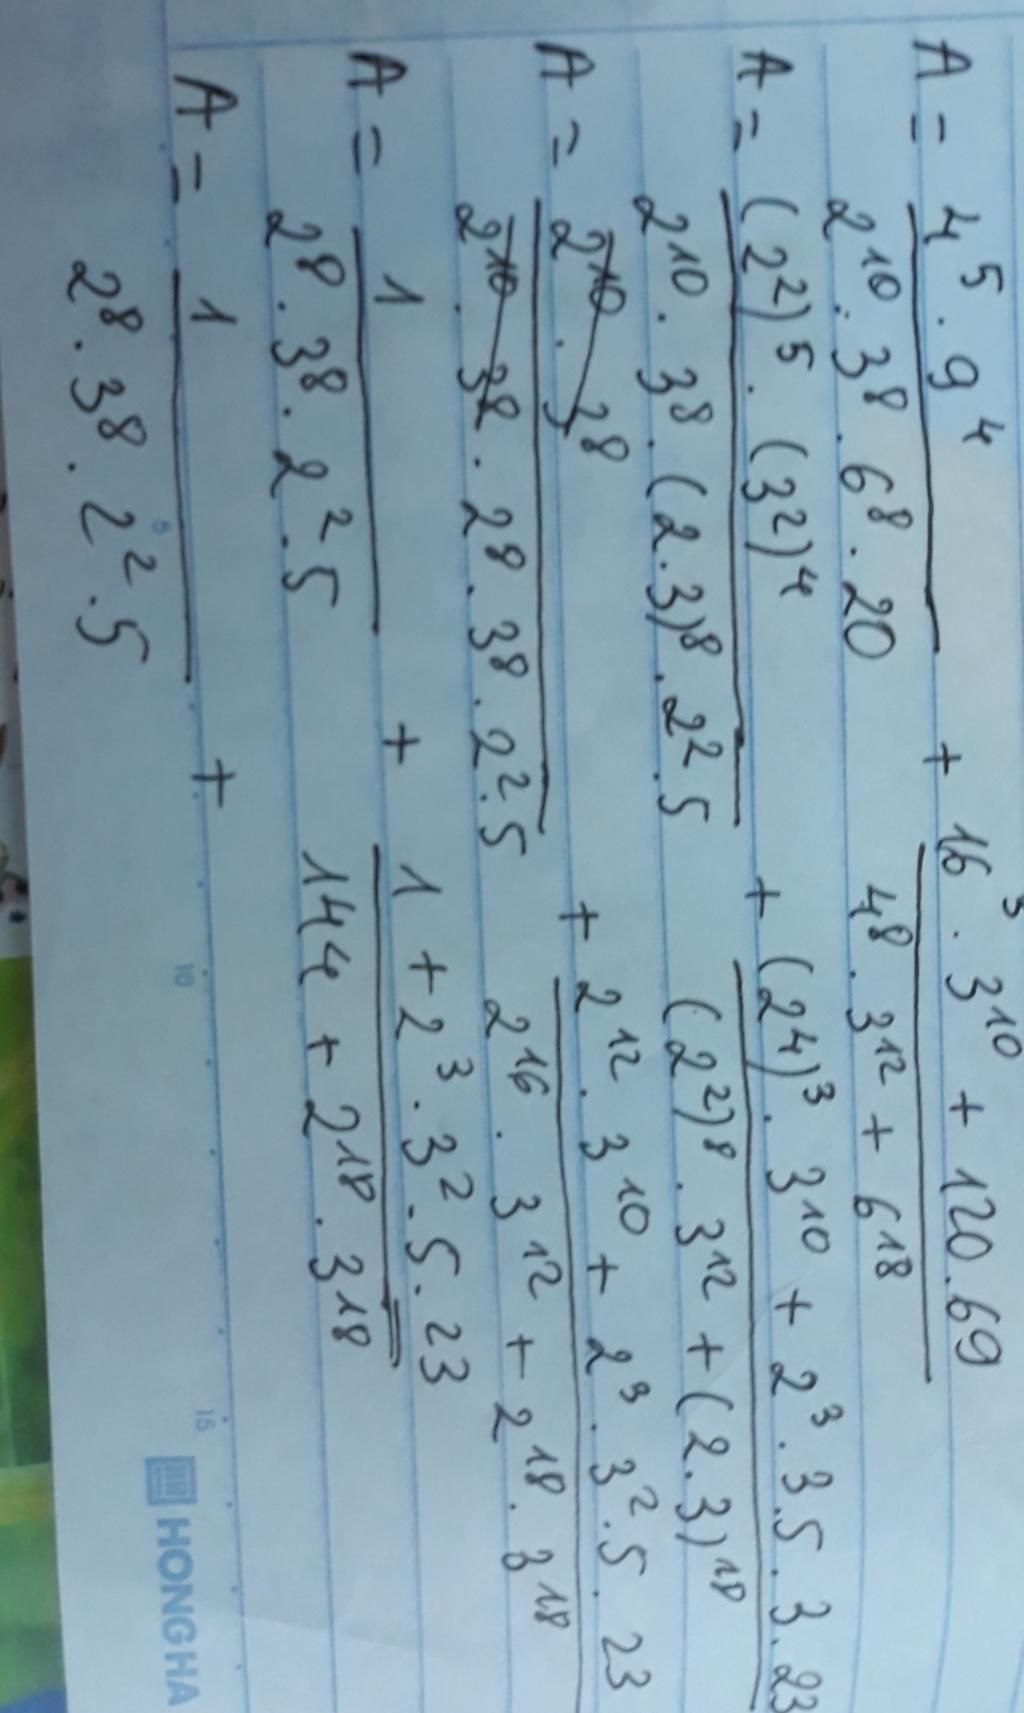 A = 4⁵ . 9⁴ / 2¹⁰ . 3⁸ . 6⁸ . 20 + 16³ . 3¹⁰ + 120 . 69 / 4⁸ . 3¹² + 6¹⁸
A = (2²)⁵ . (3²)⁴ / 2¹⁰ . 3⁸ . (2 . 3)⁸ . 2² . 5 + (2⁴)³ . 3¹⁰ + 2³ . 3 . 5 . 3 . 23 / (2²)⁸ . 3¹² + (2 . 3)¹⁸
A = 2¹⁰ . 3⁸ / 2¹⁰ . 3⁸ . 2⁸ . 3⁸ . 2² . 5 + 2¹² . 3¹⁰ + 2³ . 3² . 5 . 23 / 2¹⁶ . 3¹² + 2¹⁸ . 3¹⁸
A = 1 / 2⁸ . 3⁸ . 2² . 5 + 1 + 2³ . 3² . 5 . 23 / 144 + 2¹⁸ . 3¹⁸
A = 1 / 2⁸ . 3⁸ . 2² . 5 +
5 10 15
HONG HA